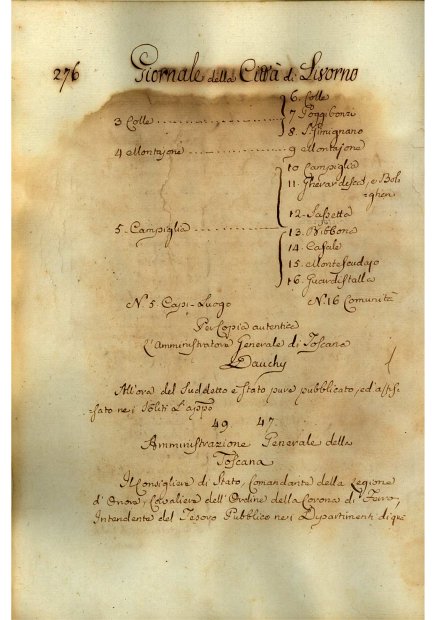 276 Giornale della Città di Livorno
6. Colle
3 Colle 7 Poggibonzi
8. S. Gimignano
4 Montajone 9 Montajone
10 Campiglia
11. Gherardesca, e Bol
gheri
12. Sassetta
5. Campiglia 13. Bibbona
14. Casale
15. Montescudajo
16. Guardistalla
N. 5. Capi-Luogo N. 16 Comunità
Per Copia autentica
L'Amministratore Generale di Toscana
Dauchy
All'ora del Suddetto è stato pure pubblicato, ed affis
sato nei soliti L'appo
49 47.
Amministrazione Generale della
Toscana
Il Consigliere di Stato, Comandante della Legione
d'Onore, Cavaliere dell'Ordine della Corona di Ferro,
Intendente del Tesoro Pubblico nei Dipartimenti di quà